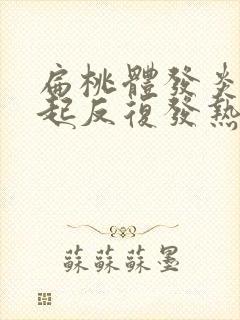 扁桃體發炎
起反復發熱
蘇蘇蘇墨